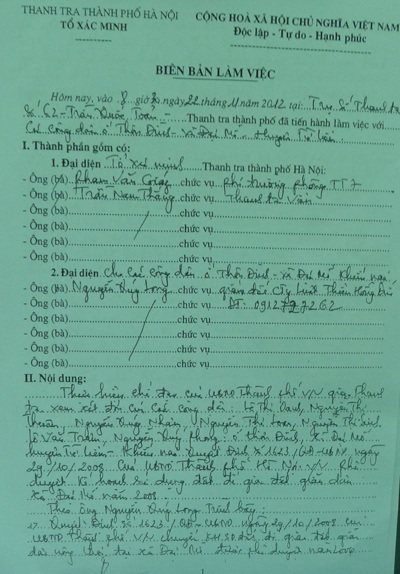 THANH TRA THÀNH PHỐ HÀ NỘI
TỔ XÁC MINH
CỘNG HOÀ XÃ HỘI CHỦ NGHĨA VIỆT NAM
Độc lập - Tự do - Hạnh phúc
BIÊN BẢN LÀM VIỆC
Hôm nay, vào 8 giờ 30 ngày 22 tháng 11/2012 tại: Trụ Sở Thanh tra
số 62 - Trần Quốc Toản Thanh tra thành phố đã tiến hành làm việc với
Các công dân ở Thôn Đình - xã Đại Mỗ - Huyện Từ Liêm
I. Thành phần gồm có:
1. Đại diện Tổ xác minh Thanh tra thành phố Hà Nội:
- Ông (bà) Phạm Văn chức vụ Phó trưởng phòng TT7
- Ông (bà) Trần Nam Thắng chức vụ Thanh tra Viên
- Ông (bà) chức vụ
- Ông (bà) chức vụ
- Ông (bà) chức vụ
- Ông (bà) chức vụ
2. Đại diện Cho các công dân ở Thôn Đình - xã Đại Mỗ Khiếu nại
- Ông (bà) Nguyễn Quý Long chức vụ giám đốc Cty Luật Thiên Hồng
- Ông (bà) chức vụ ĐT: 0912797262
- Ông (bà) chức vụ
- Ông (bà) chức vụ
- Ông (bà) chức vụ
- Ông (bà) chức vụ
II. Nội dung:
Thực hiện chỉ đạo của UBND Thành phố V/v giao Thanh
tra xem xét đơn của các công dân: Lê Thị Nguyễn Thị
Nguyễn Quý Nguyễn Thị Nguyễn Thị
Lê Văn Nguyễn Quý ở thôn Đình, xã Đại Mỗ
huyện Từ Liêm - Khiếu nại Quyết Định số 1623/QĐ-UBND ngày
29/10/2008 của UBND Thành phố Hà Nội V/v Phê
duyệt kế hoạch sử dụng đất
xã Đại Mỗ năm 2008
Theo ông Nguyễn Quý Long trình bày:
Quyết Định số 1623/QĐ-UBND ngày 29/10/2008 của
UBND Thành phố V/v chuyển
tại xã Đại Mỗ được phê duyệt năm 2008